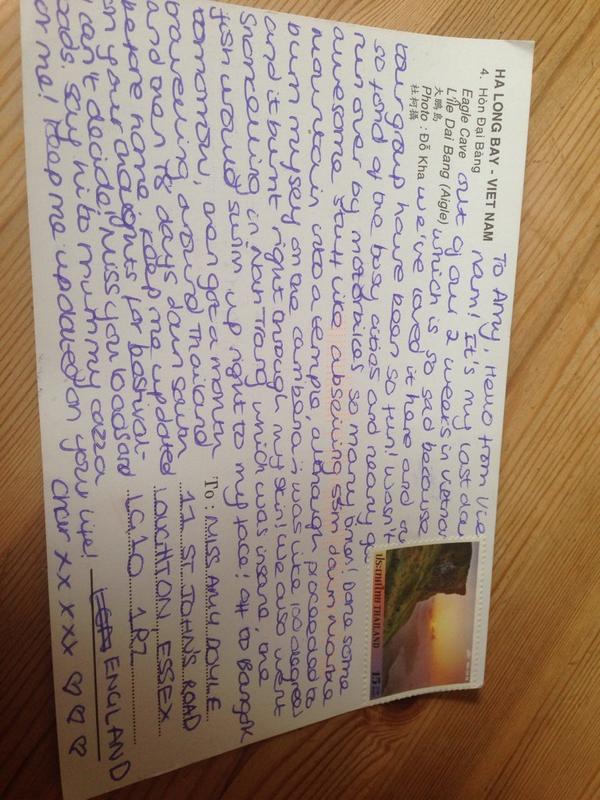 HA LONG BAY - VIET NAM
4. Hòn Đại Bàng
Eagle Cave
L'île Dai Bang (Aigle)
大鵬島
Photo : Đỗ Kha
杜柯攝
To Amy, Hello from Viet
nam! It's my last day
out of our 2 weeks in Vietnam
which is so sad because
we've loved it here and our
tour group have been so fun! Wasn't
so fond of the busy cities and nearly
run over by motorbikes so many times! Done some
awesome stuff like abseiling down marble
mountain into a temple, although proceeded to
burn myself on the carabena it was like 100 degrees
and it burnt right through my skin! We also went
Snorkelling in Nah Trang which was insane, the
fish would swim up right to my face! Off to Bangok
tomorrow, then got a month
travelling around Thailand
and then 18 days down south
before home. Keep me updated
on your for bestival-
I can't decide! Miss you loads and
loads. Say hi to mum
for me! Keep me updated on your life!
Char xx xxxx ♡ ♡ ♡
To: MISS AMY DOYLE
17 ST JOHNS ROAD
LOUGHTON ESSEX
IG10 1RZ
ENGLAND
ประเทศไทย THAILAND
15